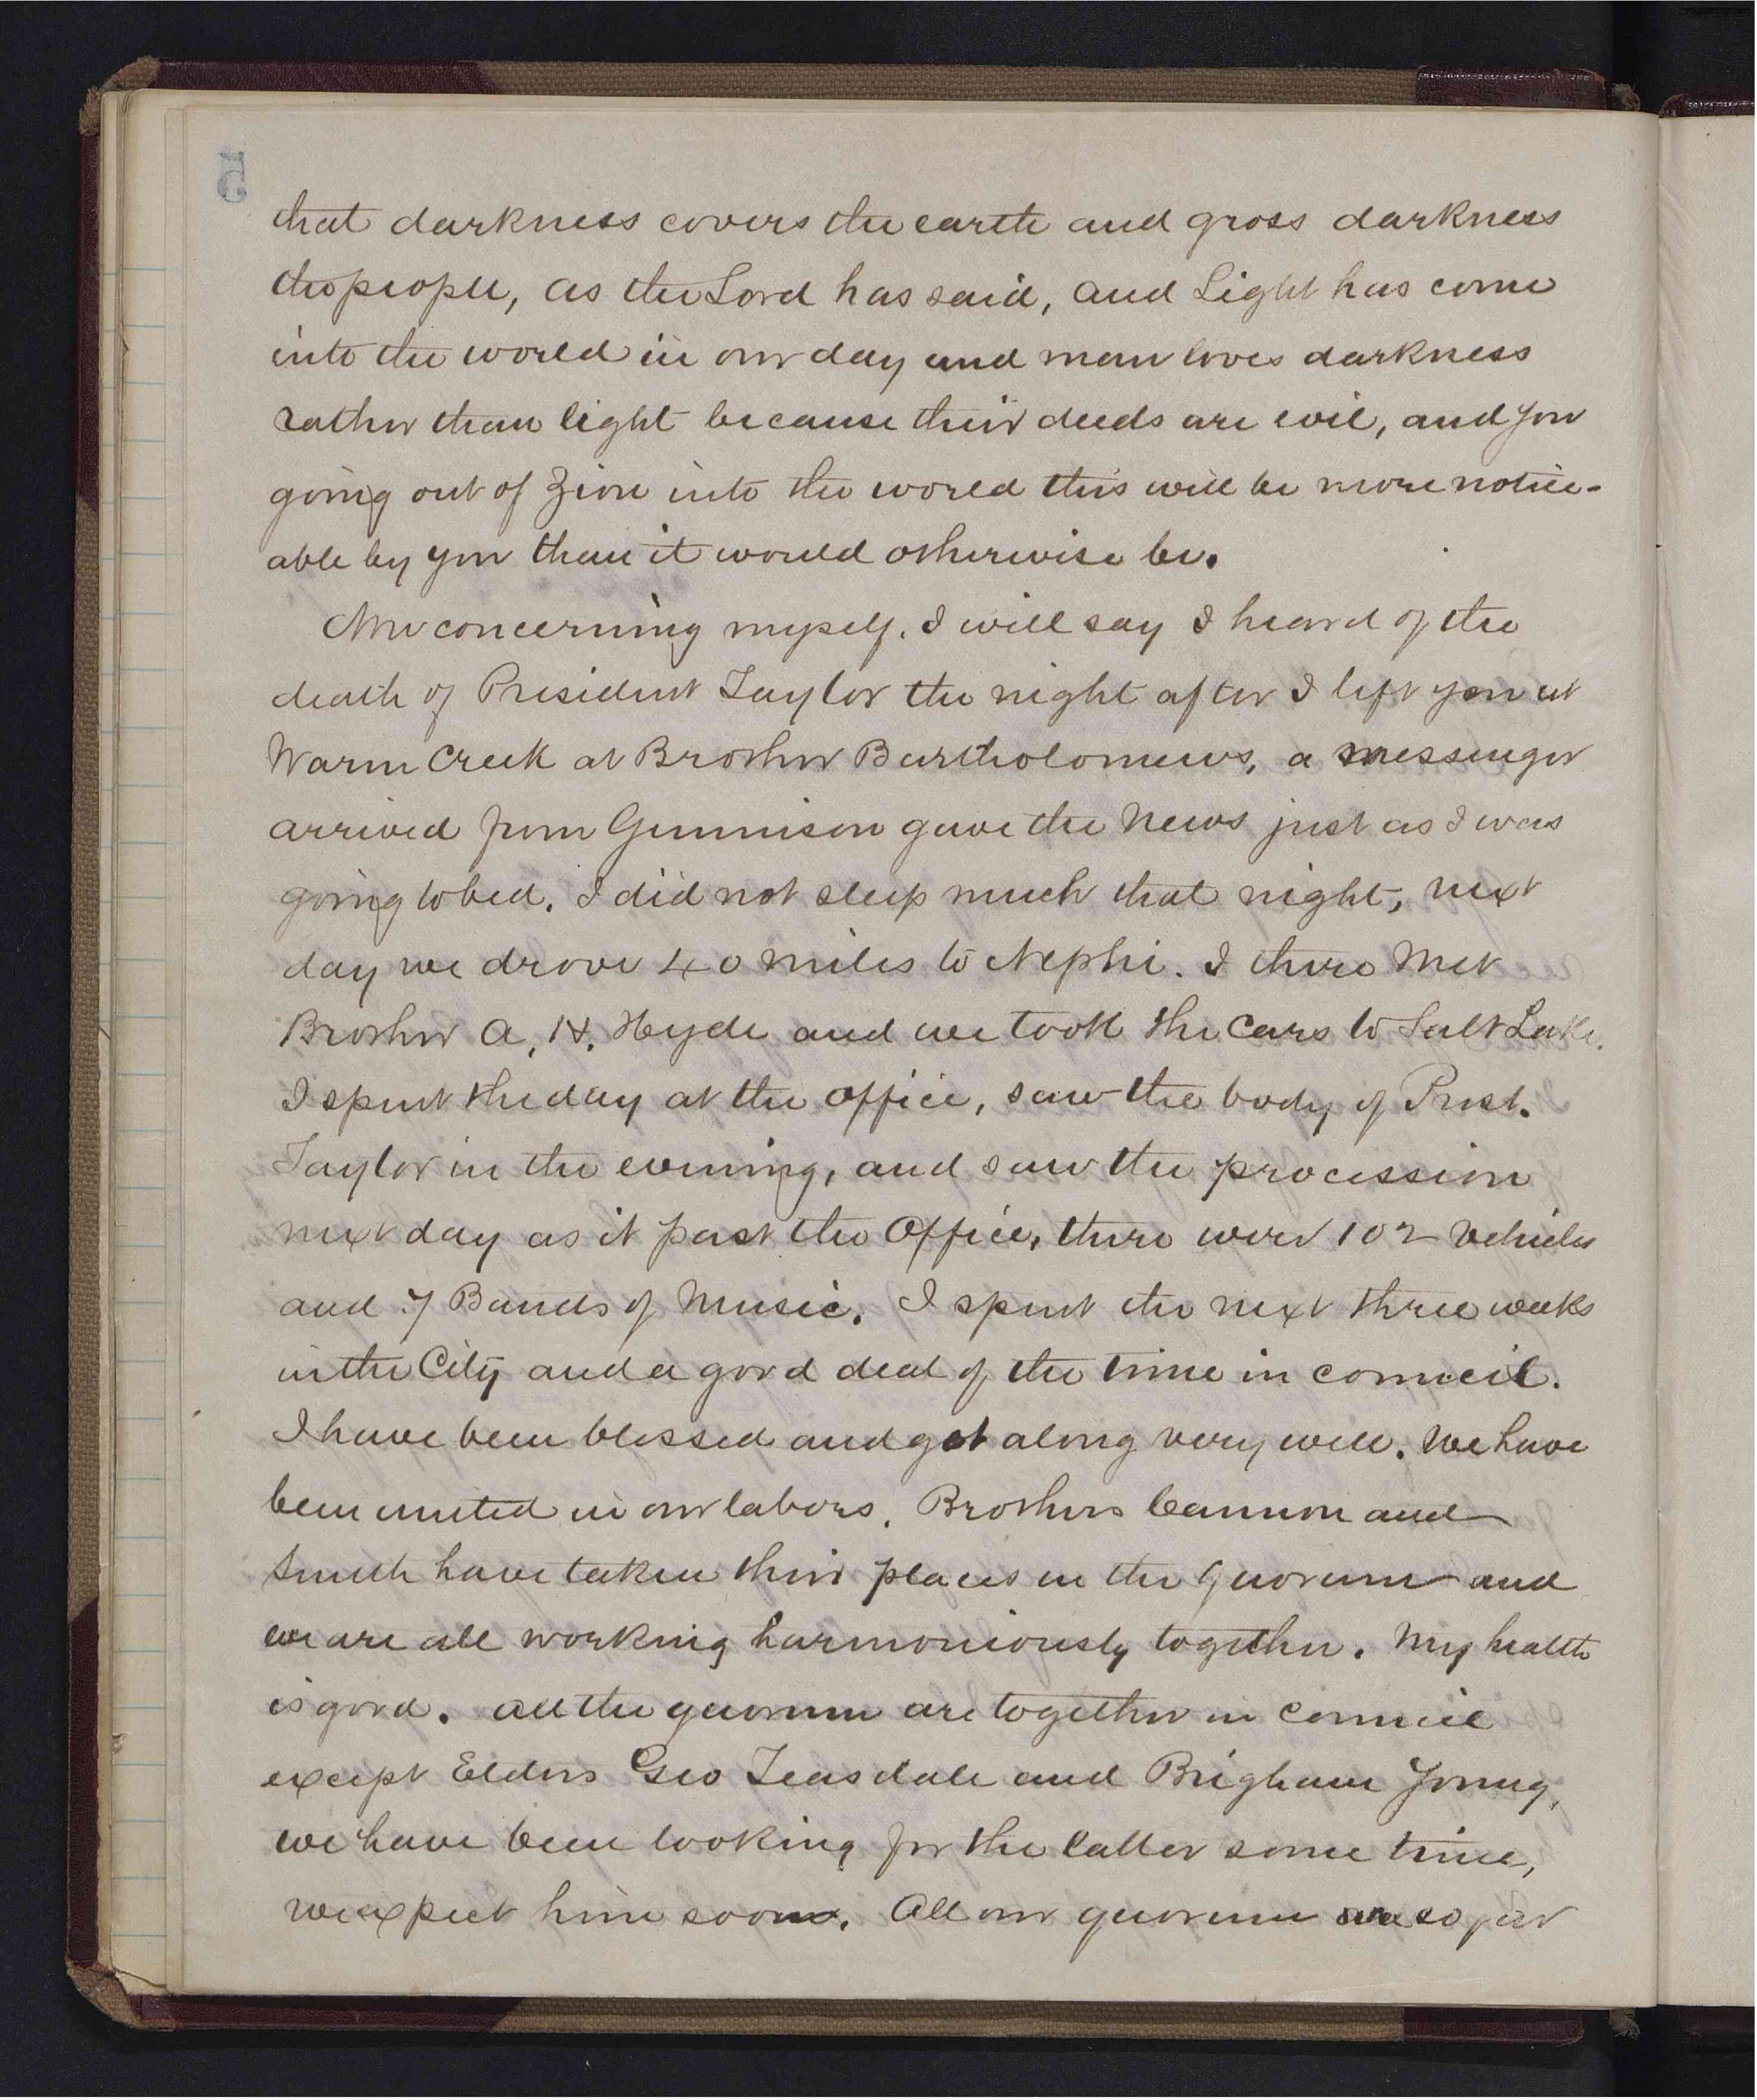 5
that darkness covers the earth and gross darkness
the people, as the Lord has said, and Light has come
into the world in our day and man loves darkness
rather than light because their deeds are evil, and you
going out of Zion into the world this will be more notice-
able by you than it would otherwise be.
Now concerning myself. I will say I heard of the
death of President Taylor the night after I left you at
Warm Creek at Brother Bartholomews, a messenger
arrived from Gunnison gave the News just as I was
going to bed. I did not sleep much that night, next
day we drove 40 miles to Nephi. I there Met
Brother A. H. Hyde and we took the Cars to Salt Lake.
I spent the day at the office, saw the body of Prest.
Taylor in the evening, and saw the procession
next day as it past the Office, there were 102 Vehicles
and 7 Bands of Music. I spent the next three weeks
in the City and a good deal of the time in council.
I have been blessed and got along very well. We have
been united in our labors. Brothers Cannon and
Smith have taken their places in the Quorum and
we are all working harmoniously together. My health
is good. All the quorum are together in Council
except Elders Geo Teasdale and Brigham Young,
we have been looking for the latter some time,
we expect him soon. All our quorum are so far